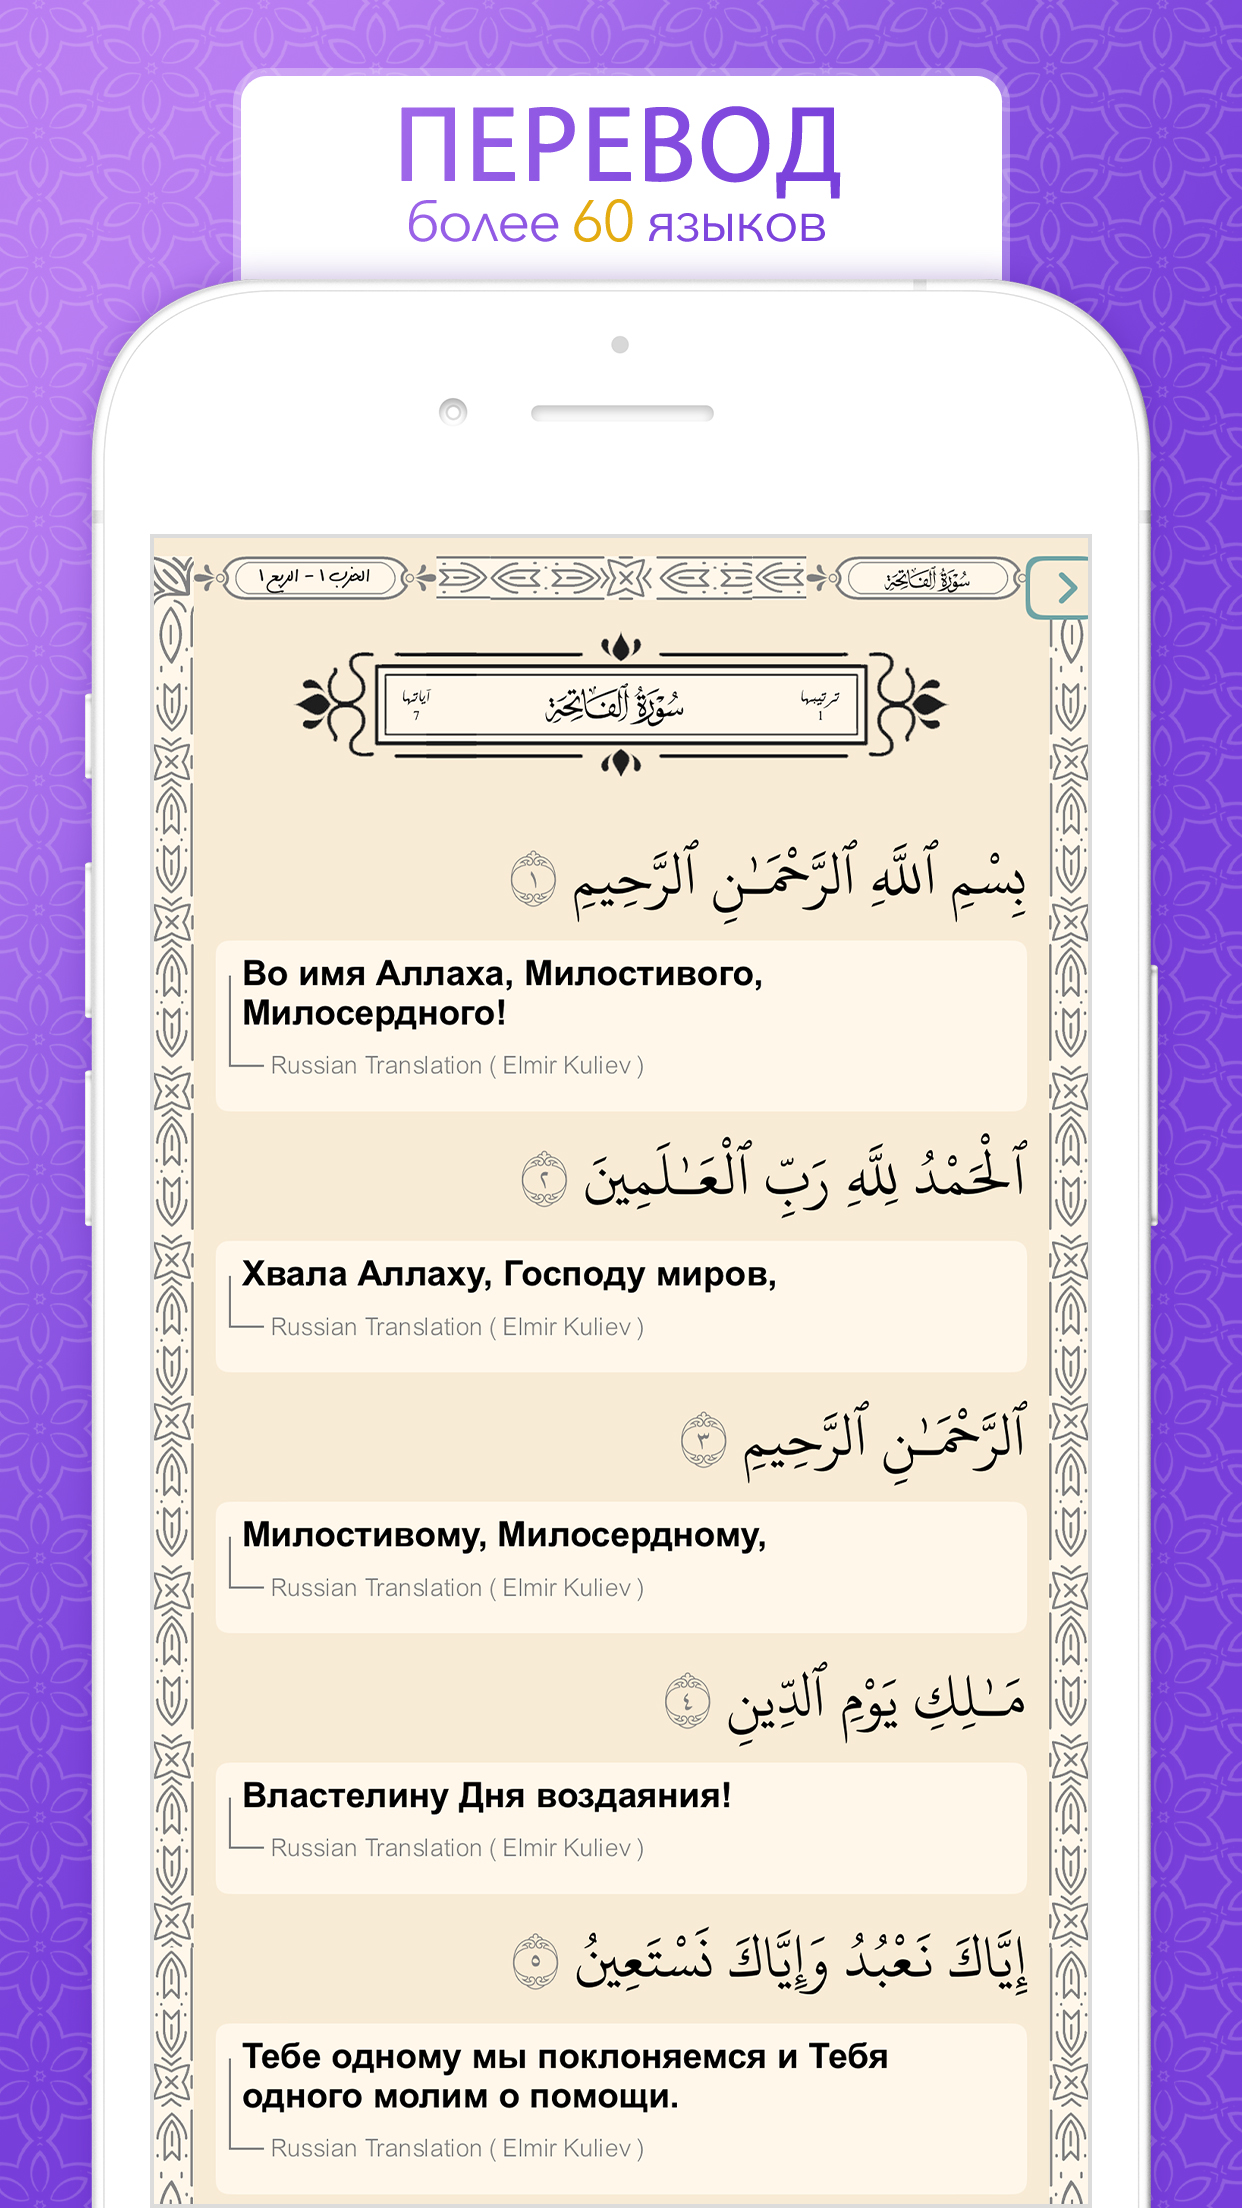 ПЕРЕВОД
более 60 языков
الحزب ١ - الربع ١
سُورَةُ ٱلفَاتِحَةِ
ترتيبها
1
سُورَةُ ٱلفَاتِحَةِ
آياتها
7
بِسْمِ ٱللَّهِ ٱلرَّحْمَـٰنِ ٱلرَّحِيمِ ١
Во имя Аллаха, Милостивого,
Милосердного!
Russian Translation ( Elmir Kuliev )
ٱلْحَمْدُ لِلَّهِ رَبِّ ٱلْعَـٰلَمِينَ ٢
Хвала Аллаху, Господу миров,
Russian Translation ( Elmir Kuliev )
ٱلرَّحْمَـٰنِ ٱلرَّحِيمِ ٣
Милостивому, Милосердному,
Russian Translation ( Elmir Kuliev )
مَـٰلِكِ يَوْمِ ٱلدِّينِ ٤
Властелину Дня воздаяния!
Russian Translation ( Elmir Kuliev )
إِيَّاكَ نَعْبُدُ وَإِيَّاكَ نَسْتَعِينُ ٥
Тебе одному мы поклоняемся и Тебя
одного молим о помощи.
Russian Translation ( Elmir Kuliev )